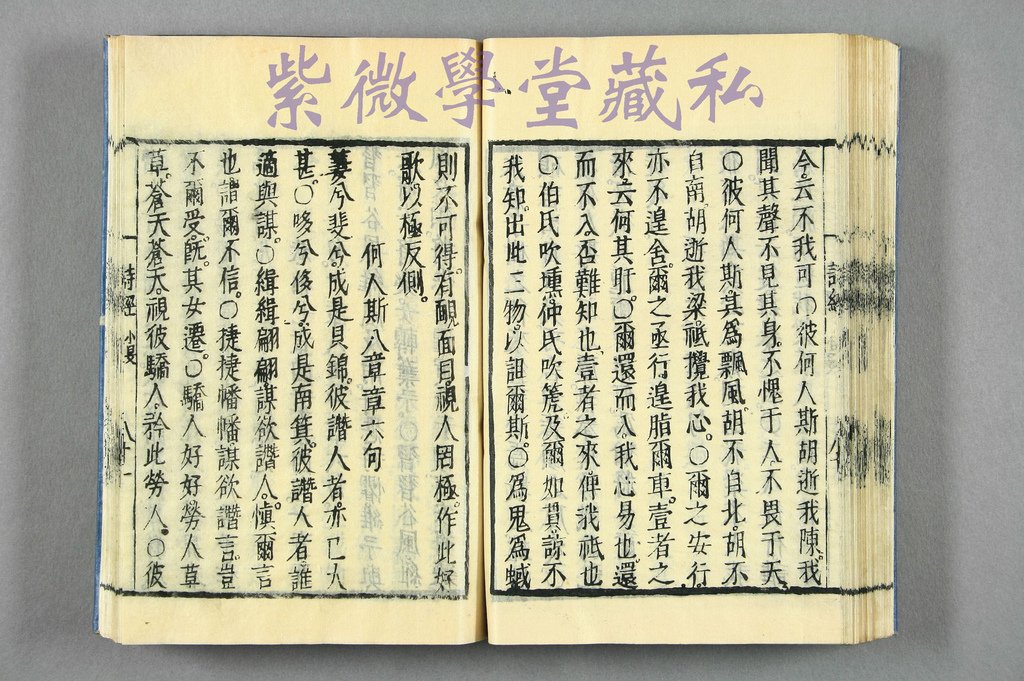 紫微學堂藏私
今。云不我可〇彼何人斯。胡逝我陳。我
聞其聲。不見其身。不愧于人。不畏于天。
〇彼何人斯。其爲飄風。胡不自北。胡不
自南。胡逝我梁。祇攪我心。〇爾之安行。
亦不遑舍。爾之亟行。遑脂爾車。壹者之
來。云何其盱。〇爾還而入。我心易也。還
而不入。否難知也。壹者之來。俾我祇也。
〇伯氏吹壎。仲氏吹篪。及爾如貫。諒不
我知。出此三物。以詛爾斯。〇爲鬼爲蜮。
則不可得。有靦面目。視人罔極。作此好
歌。以極反側。
何人斯八章章六句
萋兮斐兮。成是貝錦。彼譖人者。亦已大
甚。〇哆兮侈兮。成是南箕。彼譖人者。誰
適與謀。〇緝緝翩翩。謀欲譖人。愼爾言
也。謂爾不信。〇捷捷幡幡。謀欲譖言。豈
不爾受。旣其女遷。〇驕人好好。勞人草
草。蒼天蒼天。視彼驕人。矜此勞人。〇彼
詩經 小雅 八十一